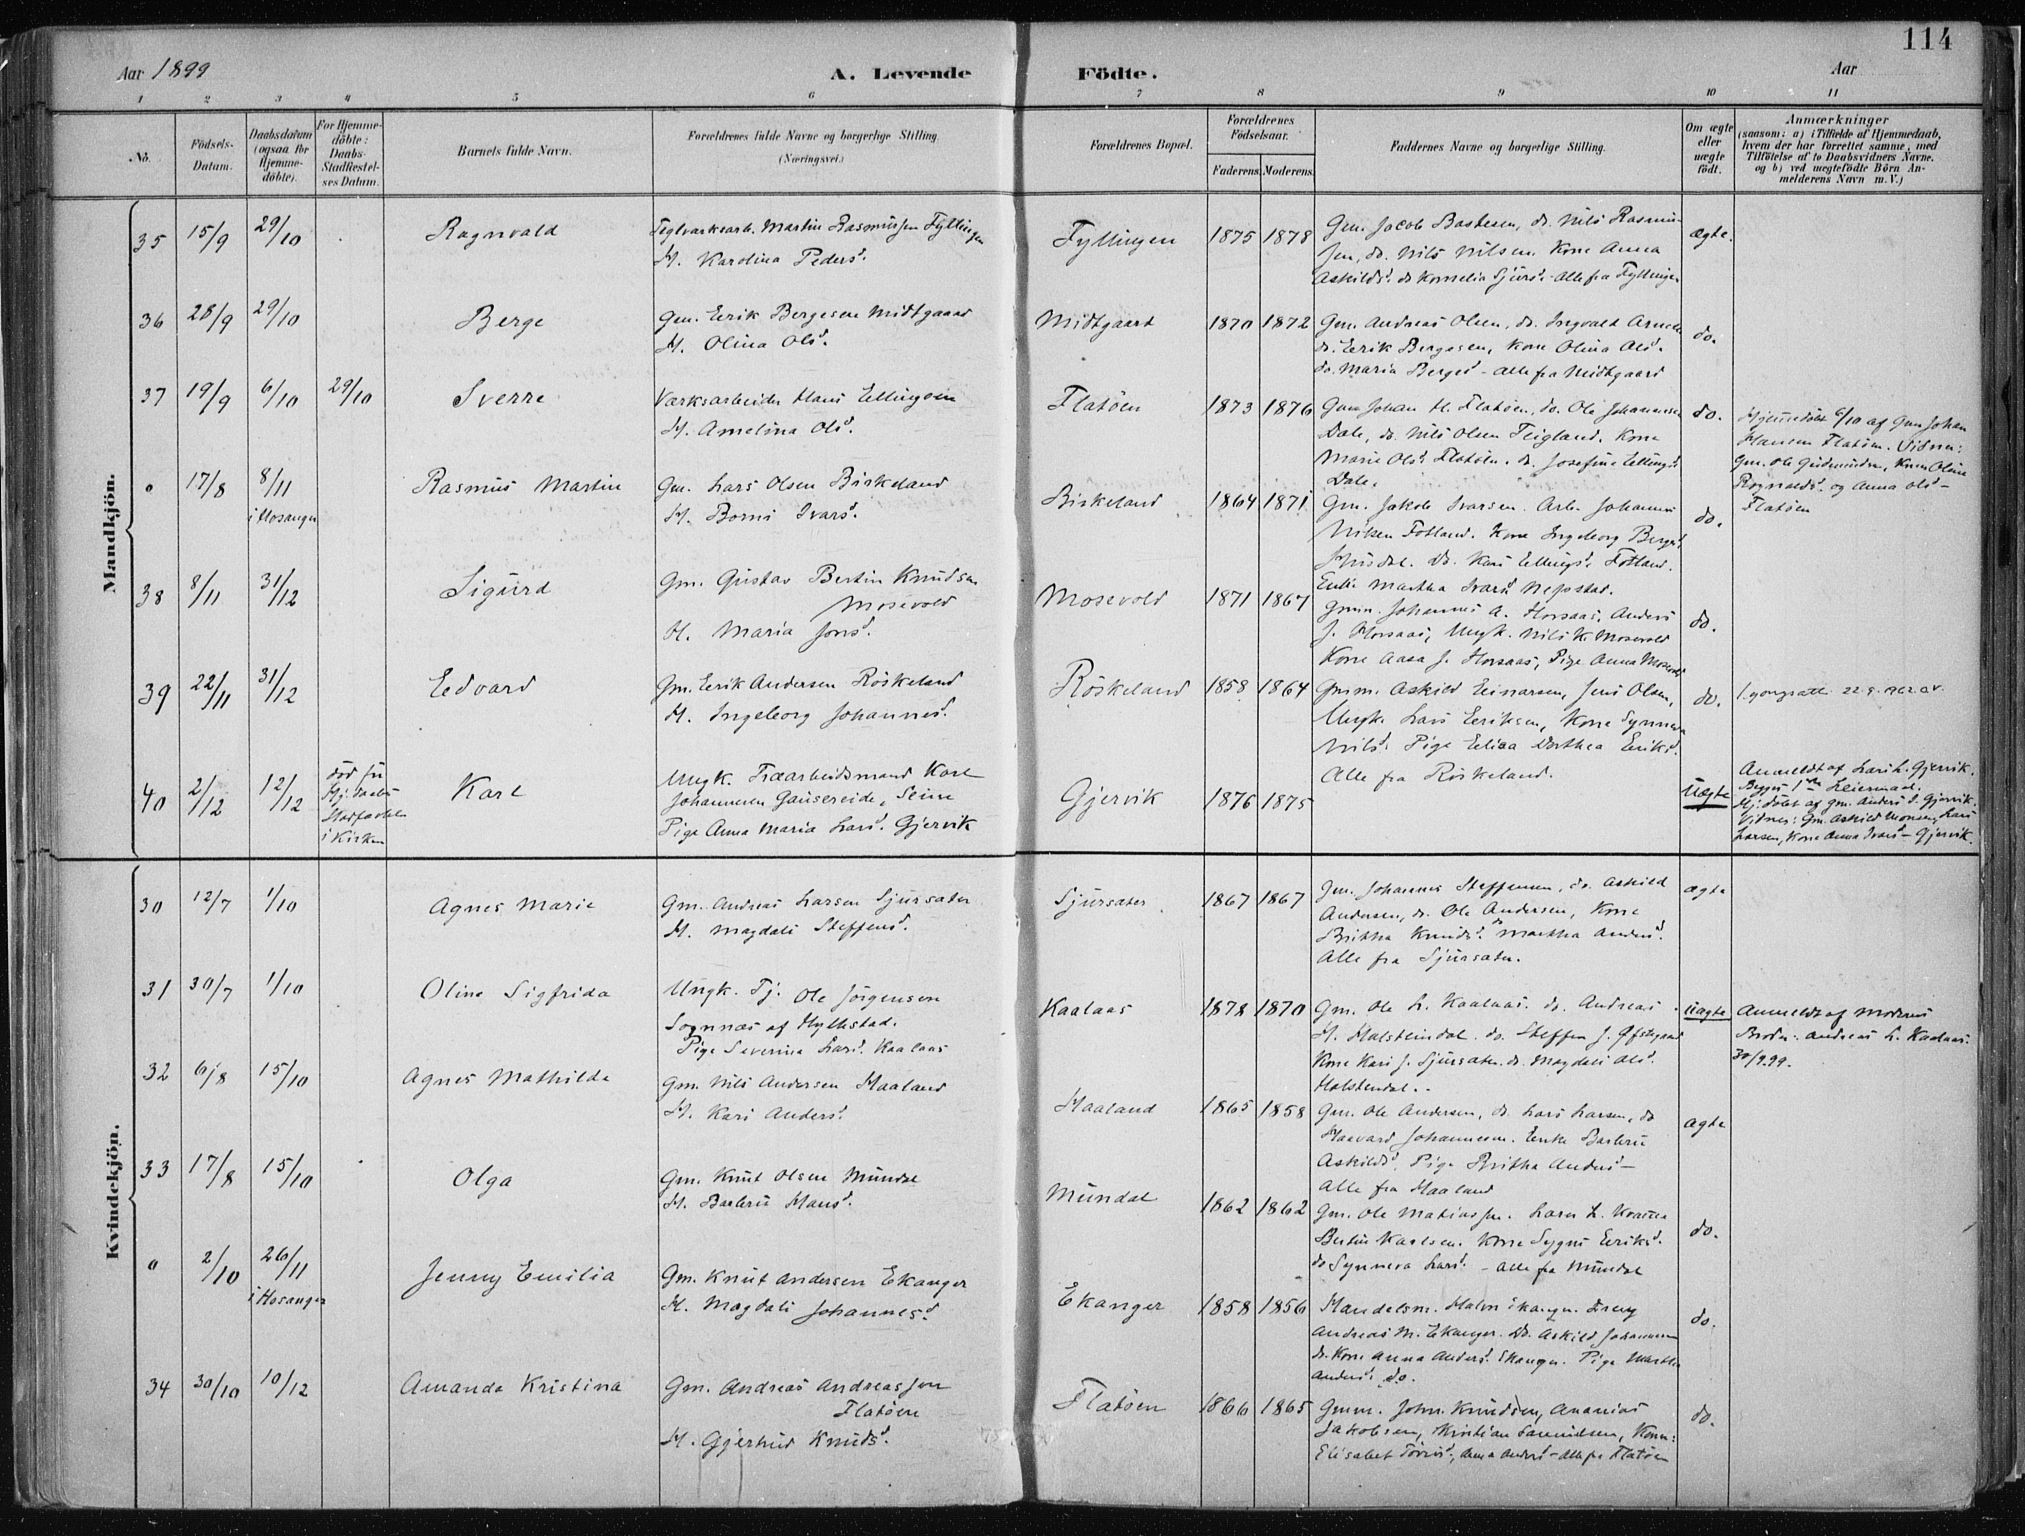 114
Aar 1899
A. Levende Födte.
Aar
1 2 3 4 5 6 7 8 9 10 11
No.
Födsels-Datum.
Daabsdatum (ogsaa for Hjemme-döbte).
For Hjemme-döbte: Daabs-Stadfæstel-ses Datum.
Barnets fulde Navn.
Forældrenes fulde Navne og borgerlige Stilling.
(Næringsvei.)
Forældrenes Bopæl.
Forældrenes Födselsaar.
Faderens. Moderens.
Faddernes Navne og borgerlige Stilling.
Om ægte eller uægte födt.
Anmærkninger
(saasom: a) i Tilfælde af Hjemmedaab,
hvem der har forrettet samme, med
Tilföielse af to Daabsvidners Navne,
og b) ved uægtefödte Börn An-
melderens Navn m. V.)
Mandkjön.
35 15/9 29/10 Ragnvald
Martin Rasmussen Fyllingen
H. Karolina Peders d.
Fyllingen 1875 1878
Gm. Jacob Bastesen, do. Nils Rasmus-
sen, do. Nils Nilsen, Kone Anna
Askilds d. do Kornelia Sjurs d. - alle fra Fyllingen
ægte.
36 28/9 29/10 Berge
Gm. Eerik Bergesen Midtgaard
H. Olina Ols d.
Midtgaard 1870 1872
Gm. Andreas Olsen, do. Ingvald
do. Eerik Bergesen, Kone Olina Ols d.
do. Maria Berges d - alle fra Midtgaard
do.
37 19/9 6/10 29/10 Sverre
Værksarbeider Hans Ellingsen
H. Amelina Ols d.
Flatöen 1873 1876
Gm Johan H. Flatöen, do. Ole Johannesen
Dale, do. Nils Olsen Teigland. Kone
Marie Ols d. Flatöen. do. Josefine Ellings d.
Dale.
do.
Hjemmedöbt 6/10 af Gm Johan
Hansen Flatöen. Vidner:
Gm. Ole Gudmundsen, Kone Oline
Ragnvalds d. og Anna Ols d -
Flatöen
" 17/8 8/11
i Hosanger
Rasmus Martin
Gm. Lars Olsen Birkeland
H. Borni Ivars d.
Birkeland 1864 1871
Gm. Jakob Ivarsen. Arb. Johannes
Nilsen Fotland. Kone Ingeborg Berges d.
do. Kari Ellings d. Fotland.
Enke Martha Ivars d. Nepstad.
do.
38 8/11 31/12 Sigurd
Gm. Gustav Bertin Knudsen
Mosevold
H. Maria Jons d.
Mosevold 1871 1867
Gmm. Johannes A. Horsaas, Anders
J. Horsaas, Ungk. Nils K. Mosevold
Kone Aasa J. Horsaas, Pige Anna Mosevold
do.
39 22/11 31/12 Edvard
Gm. Eerik Andersen Röskeland
H. Ingeborg Johannes d.
Röskeland 1858 1864
Gmm. Askild Einarsen, Jens Olsen,
Ungk. Lars Eeriksen, Kone Synneva
Nils d. Pige Elisa Dorthea Eeriks d.
Alle fra Röskeland.
do.
22.9.1962
40 2/12 12/12
död för
Hj. daabs
Stadfæstelse
i Kirken
Karl
Ungk. Træarbeidsmand Karl
Johannesen Gausereide, Seim
Pige Anna Maria Lars d. Gjervik
Gjervik 1876 1875
Uægte
Anmeldt af Lars L. Gjervik.
Begges 1ste Leiermaal.
Hj. döbt af gm. Anders J. Gjervik.
Vidner: Gm. Askild Monsen, Lars
Larsen, Kone Anna Ivars d - Gjervik.
Kvindekjön.
30 12/7 1/10 Agnes Marie
Gm. Andreas Larsen Sjursæter
H. Magdali Steffens d.
Sjursæter 1867 1867
Gm. Johannes Steffensen, do. Askild
Andersen, do. Ole Andersen, Kone
Britha Knuds d. do Martha Anders d.
Alle fra Sjursæter.
ægte
31 30/7 1/10 Oline Sigfrida
Ungk. Tj. Ole Jörgensen
Sognnæs af Hylkstad.
Pige Severina Lars d. Kaalaas
Kaalaas 1878 1870
Gm. Ole L. Kaalaas. do. Andreas
H. Halsteindal. do. Steffen J.
Kone Kari J. Sjursæter. do. Magdali Ols d.
Halstendal.
Uægte
Anmeldt af Moderens
Broder: Andreas L. Kaalaas.
30/9.99.
32 6/8 15/10 Agnes Mathilde
Gm. Nils Andersen Haaland
H. Kari Anders d.
Haaland 1865 1858
Gm. Ole Andersen, do. Lars Larsen, do
Haavard Johannesen. Enke Barbru
Askilds d, Pige Britha Anders d -
Alle fra Haaland
ægte
33 17/8 15/10 Olga
Gm. Knut Olsen Mundal
H. Barbru Hans d.
Mundal 1862 1862
Gm. Ole Matiassen. Lars L.
Bertin Karlsen. Kone Eeriks d.
do Synneva Lars d. - alle fra Mundal
do.
" 2/10 26/11
i Hosanger
Jenny Emilia
Gm. Knut Andersen Ekanger
H. Magdali Johannes d.
Ekanger 1858 1856
Handelsm. Ekanger.
Andreas M. Ekanger. Do. Askild Johannesen
do. Kone Anna Anders d. Ekanger. Pige Martha
Anders d. do.
do.
34 30/10 10/12 Amanda Kristina
Gm. Andreas Andreassen
Flatöen
H. Gjertrud Knuds d.
Flatöen 1866 1865
Gmm. John Knudsen, Ananias
Jakobsen, Kristian
Elisabet, Anna Anders d - alle fra Flatöen
do.